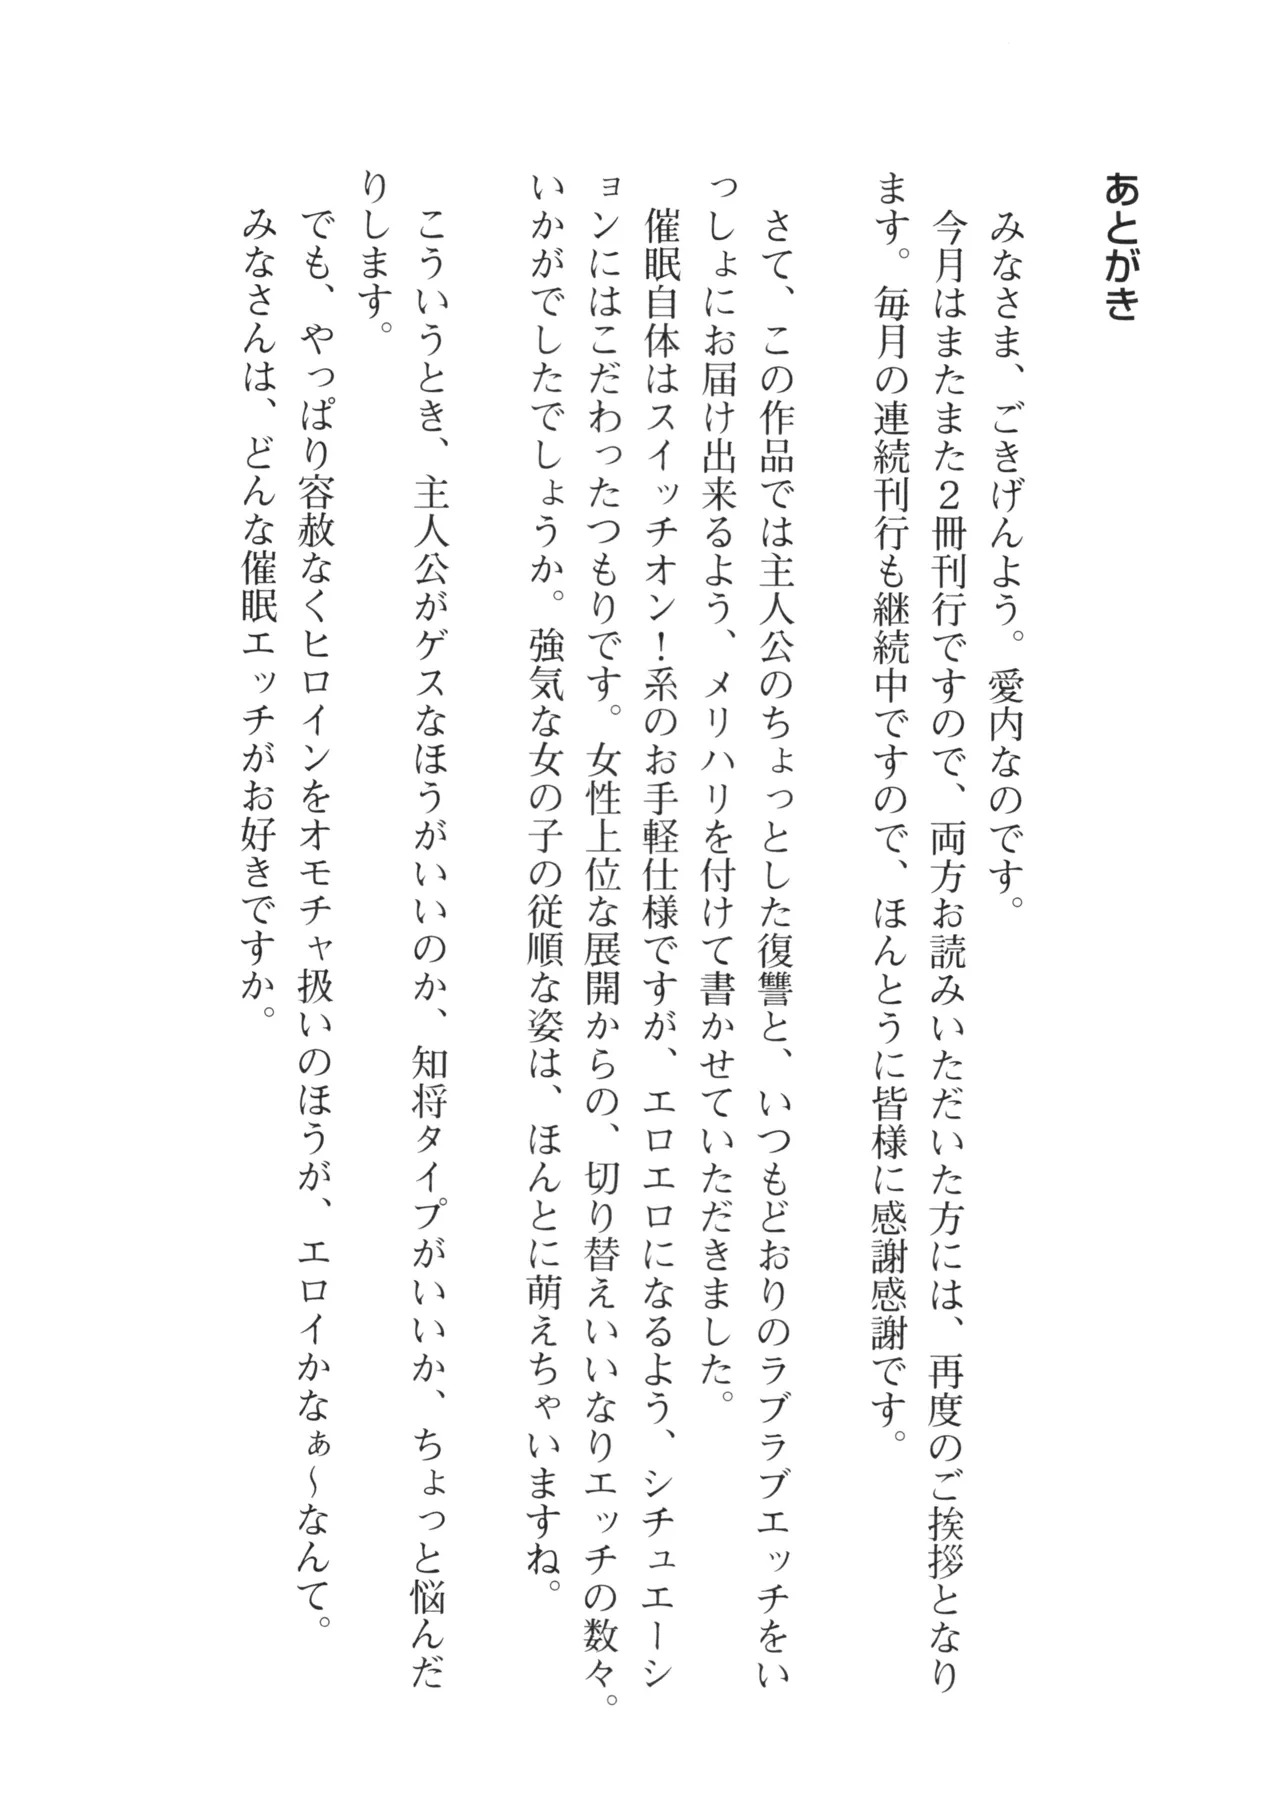 あとがき
みなさま、ごきげんよう。愛内なのです。
今月はまたまた２冊刊行ですので、両方お読みいただいた方には、再度のご挨拶となり
ます。毎月の連続刊行も継続中ですので、ほんとうに皆様に感謝感謝です。
さて、この作品では主人公のちょっとした復讐と、いつもどおりのラブラブエッチをい
っしょにお届け出来るよう、メリハリを付けて書かせていただきました。
催眠自体はスイッチオン！系のお手軽仕様ですが、エロエロになるよう、シチュエーシ
ョンにはこだわったつもりです。女性上位な展開からの、切り替えいいなりエッチの数々。
いかがでしたでしょうか。強気な女の子の従順な姿は、ほんとに萌えちゃいますね。
こういうとき、主人公がゲスなほうがいいのか、知将タイプがいいか、ちょっと悩んだ
りします。
でも、やっぱり容赦なくヒロインをオモチャ扱いのほうが、エロイかなぁ～なんて。
みなさんは、どんな催眠エッチがお好きですか。